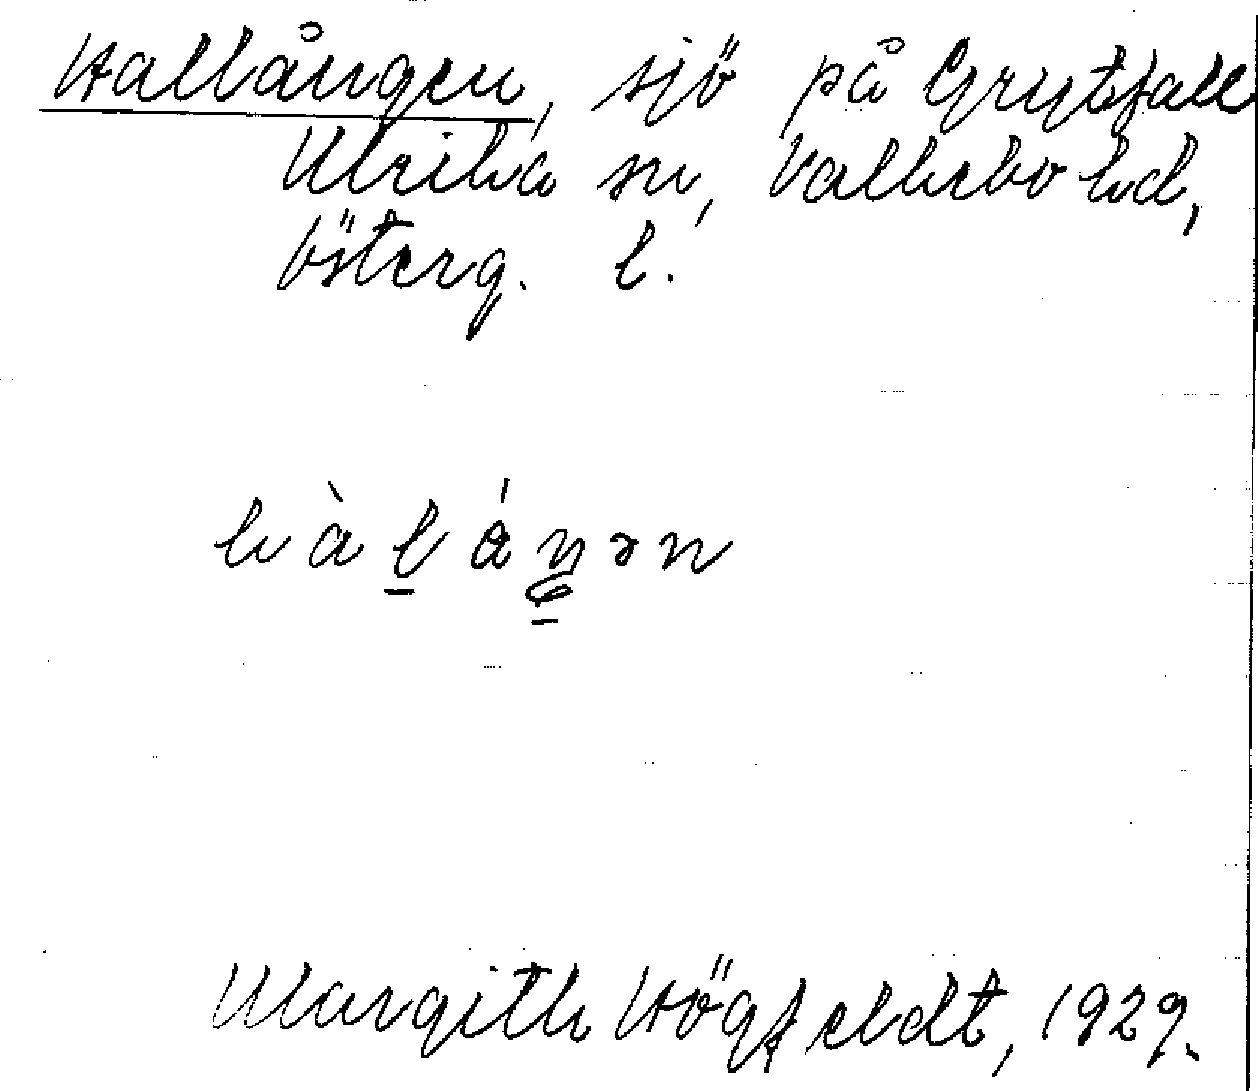 Hallången, sjö på Grytfall
Ulrika sn, Vallebo hd,
Österg. l.
hàláŋən
Margith Högfeldt, 1929.